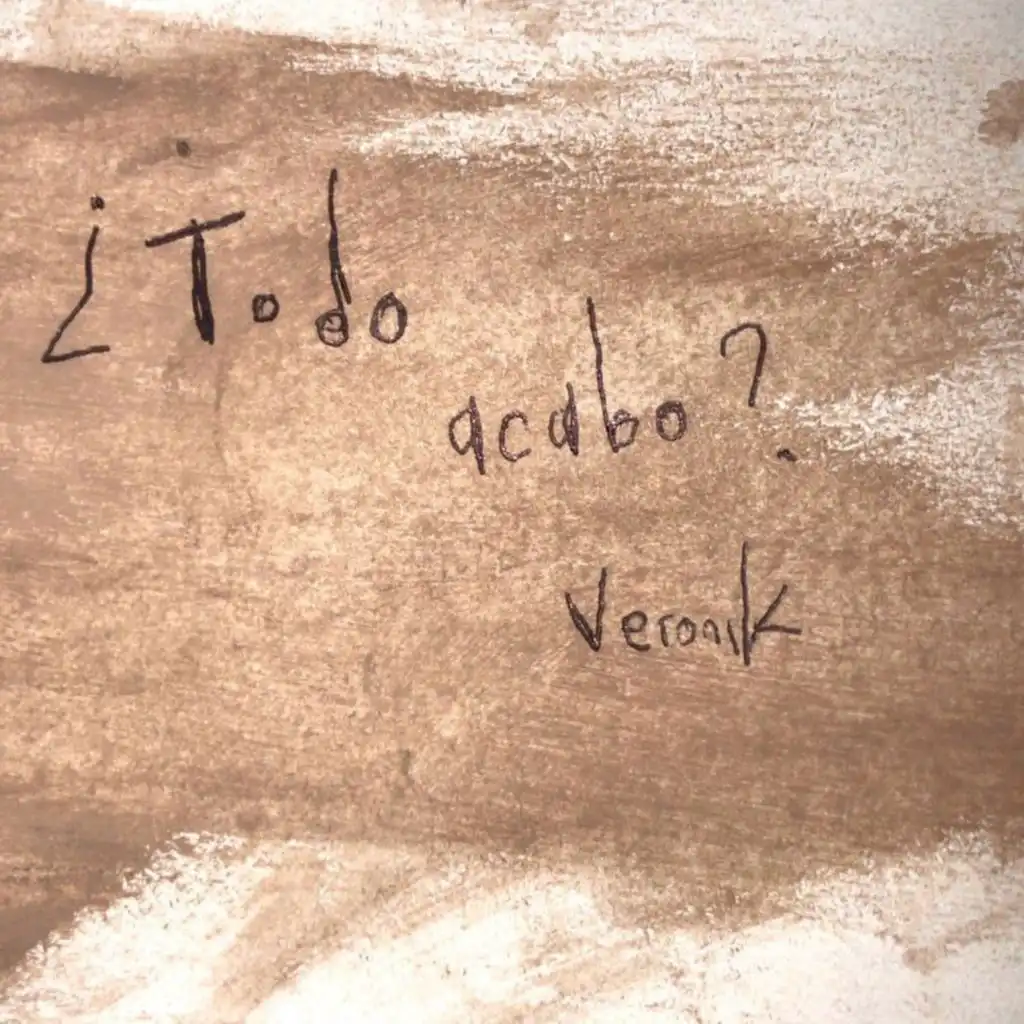 ¿Todo
acabo?
Veronik